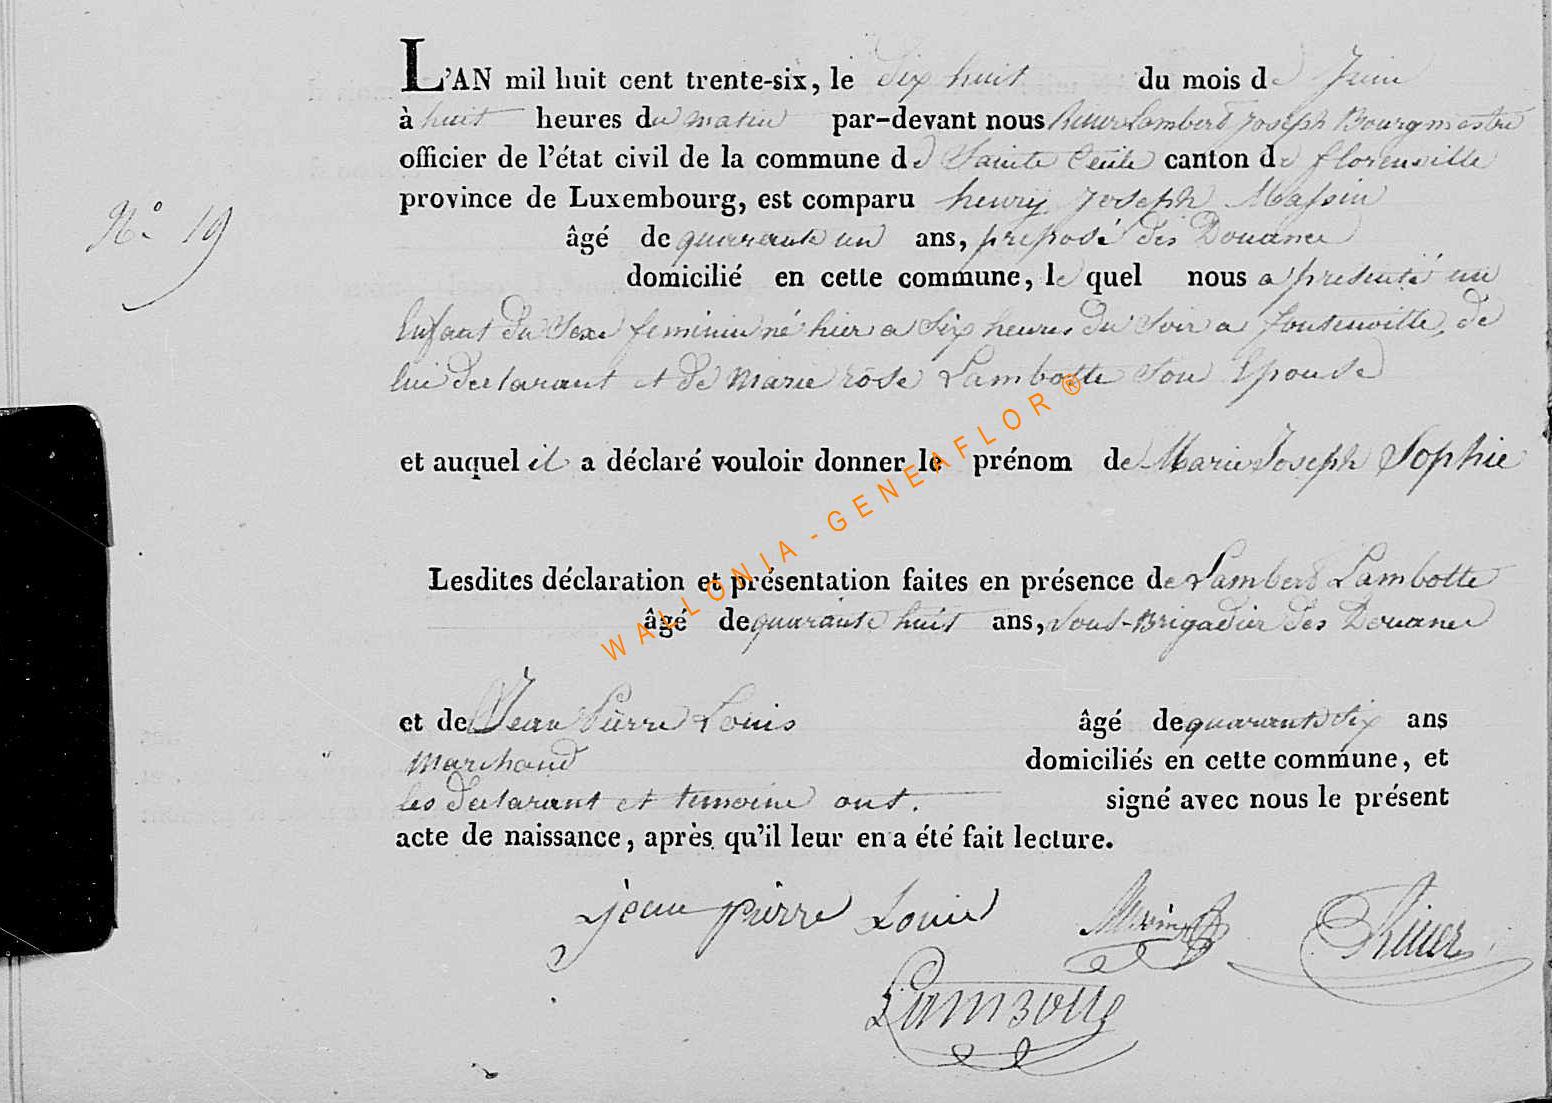 L'AN mil huit cent trente-six, le dix huit du mois de Juin
à huit heures du matin par-devant nous Lambert Joseph Bourgmestre
officier de l'état civil de la commune de Sainte Cécile canton de florenville
province de Luxembourg, est comparu henry Joseph Massin
N.° 19
âgé de quarante un ans, préposé des Douanes
domicilié en cette commune, le quel nous a présenté un
Enfant du Sexe feminin né hier a Six heures du Soir a fontenoille, de
lui declarant et de Marie rose Lambotte Son Epouse
et auquel il a déclaré vouloir donner le prénom de Marie Joseph Sophie
Lesdites déclaration et présentation faites en présence de Lambert Lambotte
âgé de quarante huit ans, Sous-Brigadier des Douanes
et de Jean Pierre Louis âgé de quarante Six ans
Marchand domiciliés en cette commune, et
les declarant et temoins ont. signé avec nous le présent
acte de naissance, après qu'il leur en a été fait lecture.
jean pierre Louis Massin
Lambotte
WALLONIA - GENEAFLOR ®